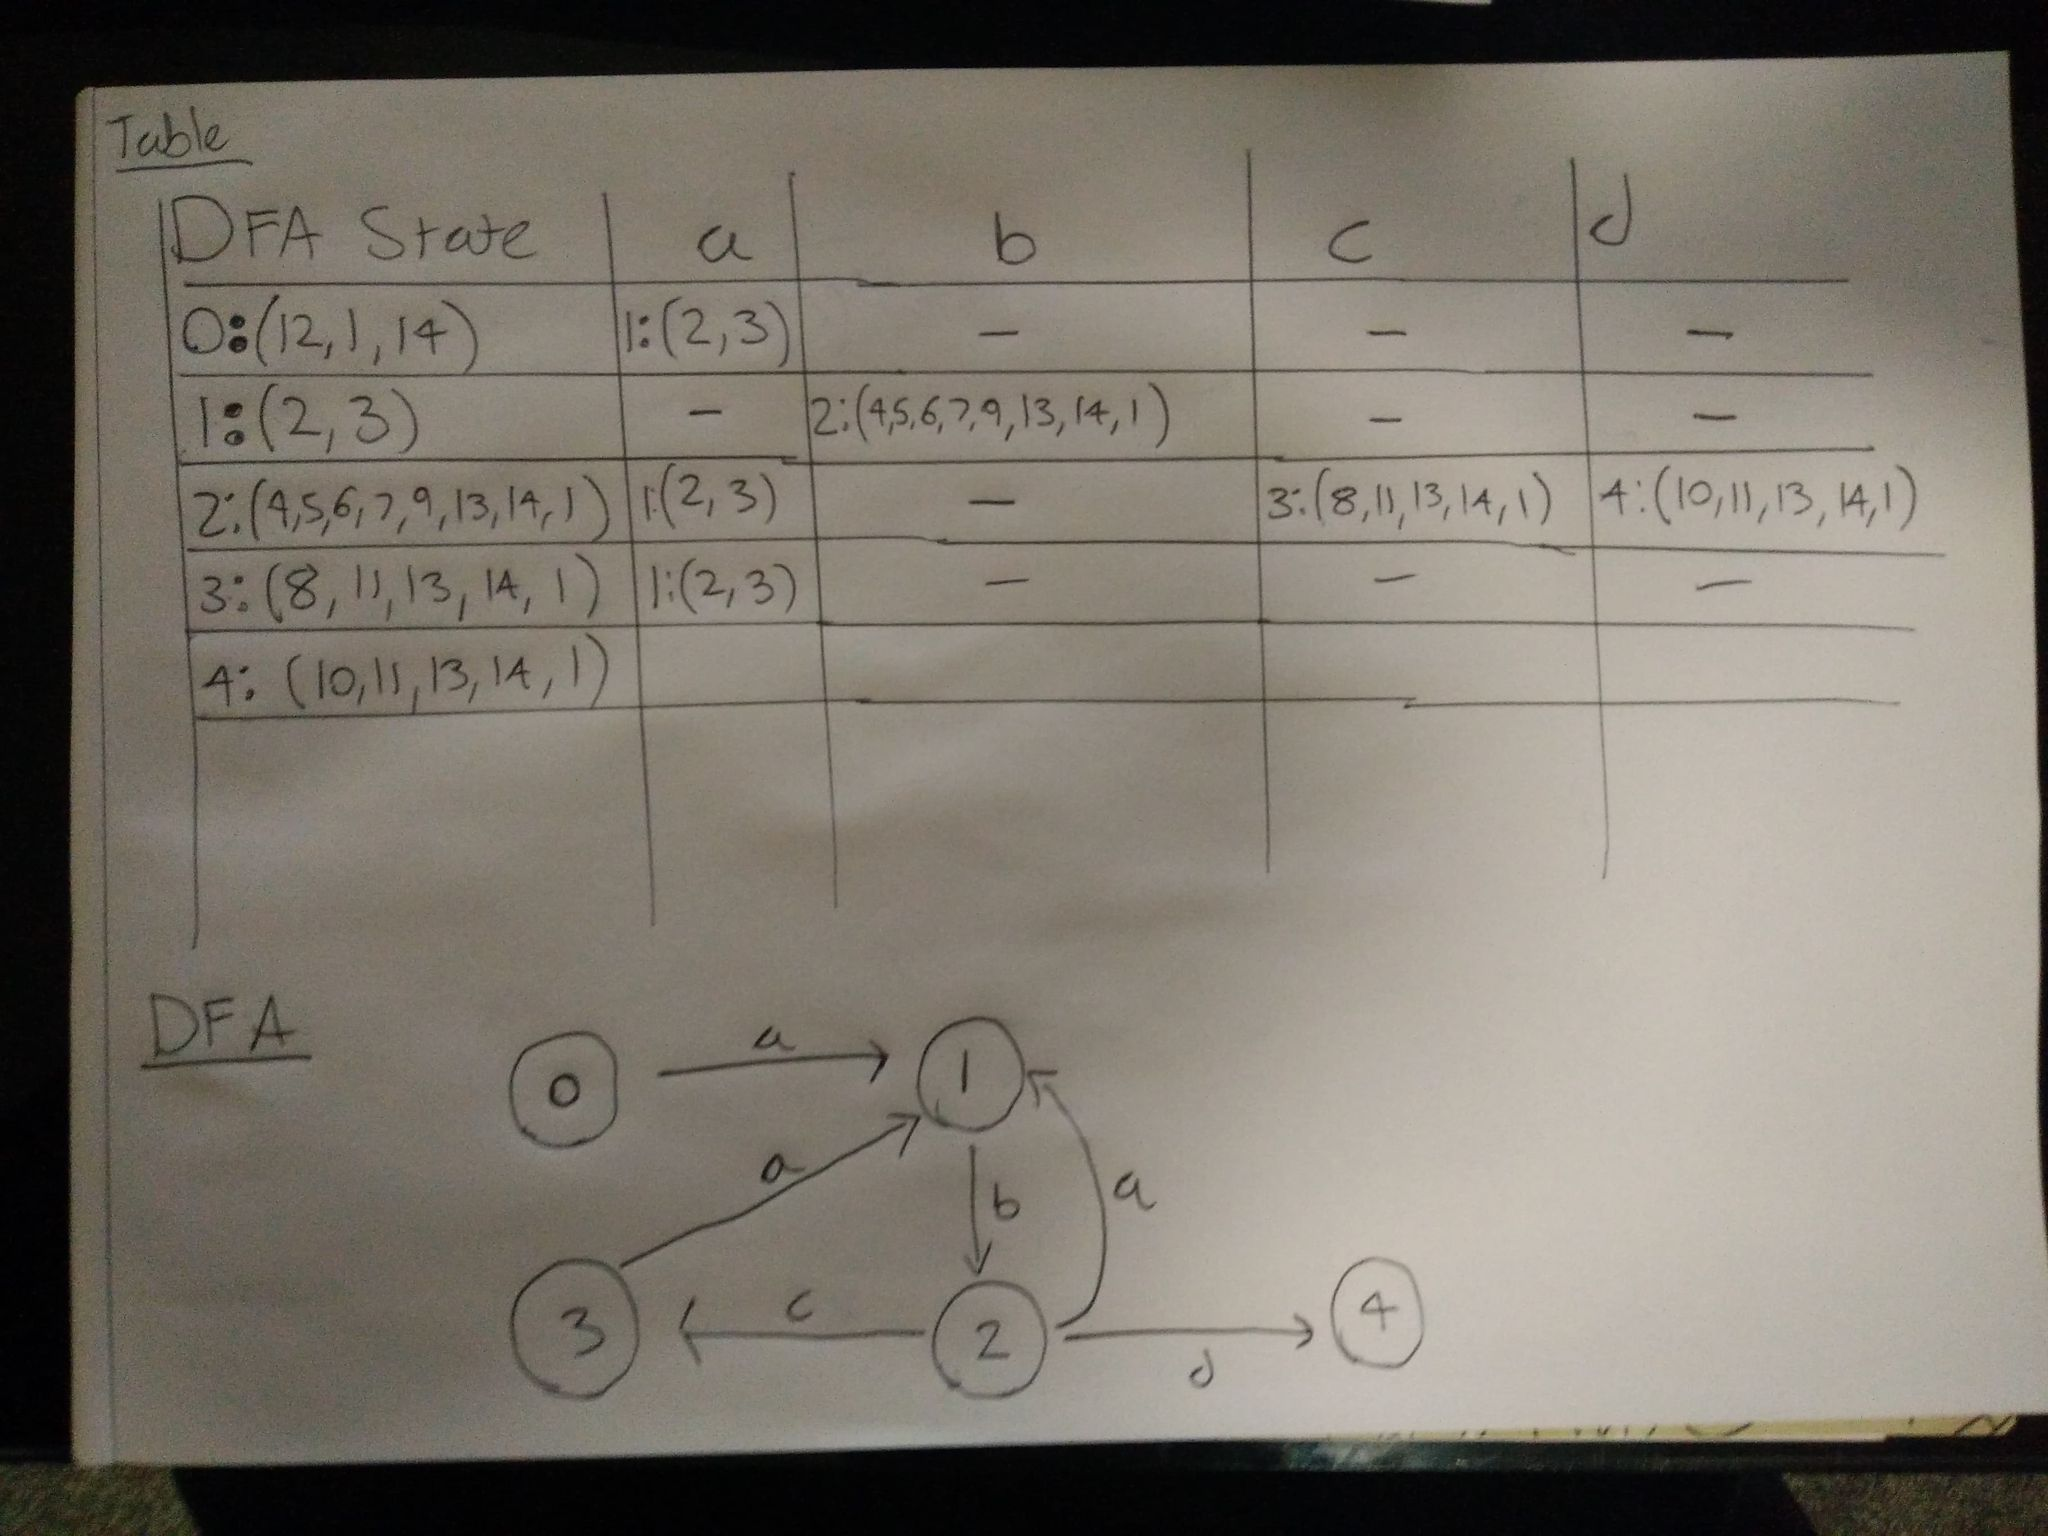 Table
DFA State a b c d
0:(12,1,14) 1:(2,3) — — —
1:(2,3) — 2:(4,5,6,7,9,13,14,1) — —
2:(4,5,6,7,9,13,14,1) 1:(2,3) — 3:(8,11,13,14,1) 4:(10,11,13,14,1)
3:(8,11,13,14,1) 1:(2,3) — — —
4:(10,11,13,14,1)
DFA
0 a 1
a b a
3 c 2 d 4